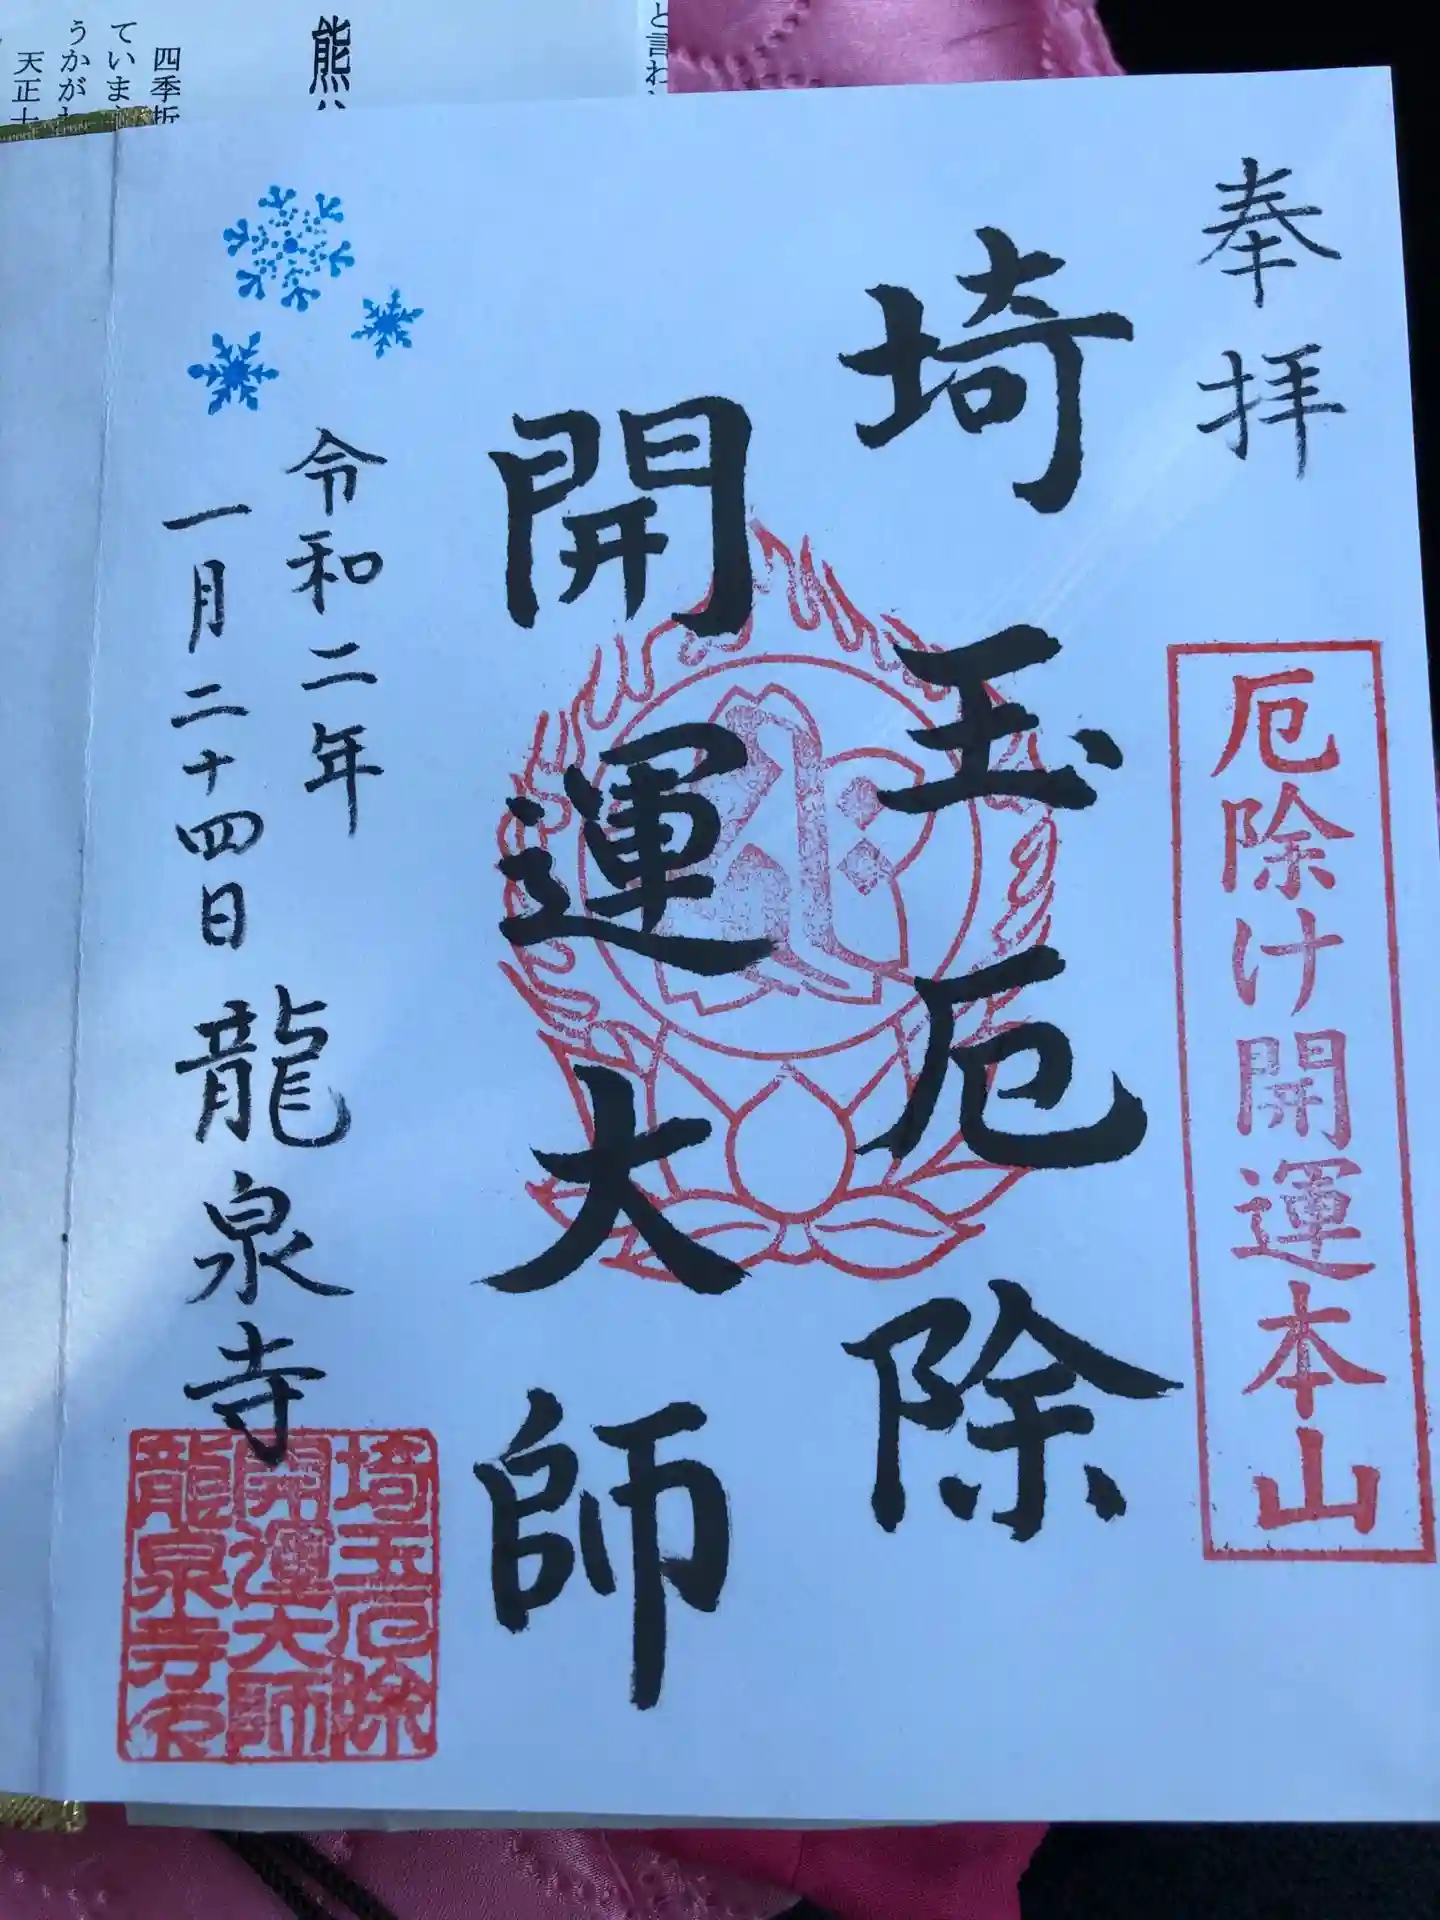 奉拝
厄除け開運本山
埼玉厄除
開運大師
令和二年
一月二十四日
龍泉寺
埼玉厄除
開運大師
龍泉寺
と言わ
熊
四季折
ていま
うかが
天正十